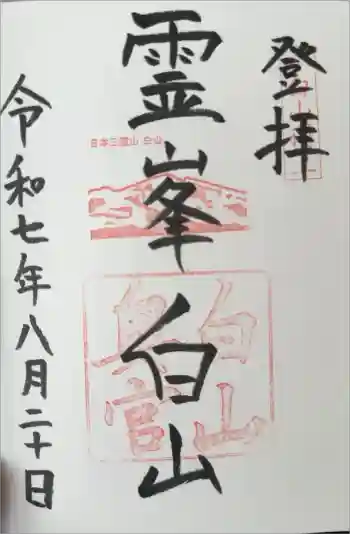 登拝
日本三霊山 白山
霊峯白山
白山
奥宮
令和七年八月二十日